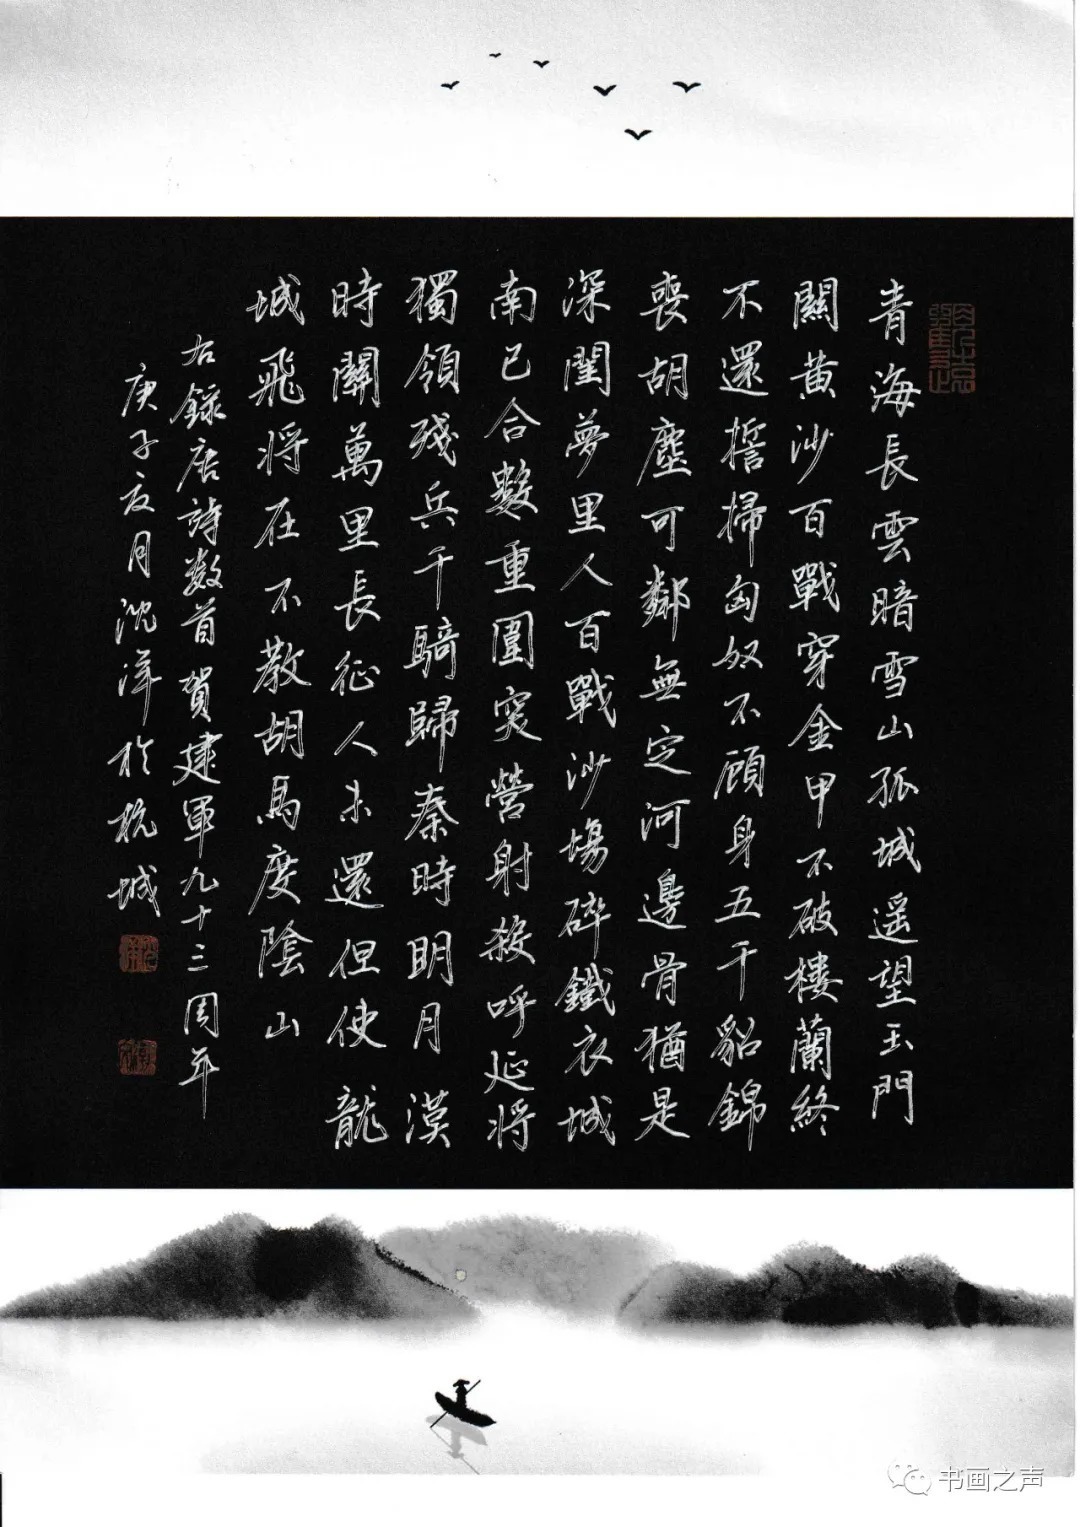 青海長雲暗雪山孤城遥望玉門
關黄沙百戰穿金甲不破樓蘭終
不還誓掃匈奴不顧身五千貂錦
喪胡塵可鄰無定河邊骨猶是
深閨夢里人百戰沙場碎鐵衣城
南已合數重圍突營射殺呼延将
獨領殘兵千騎歸秦時明月漢
時關萬里長征人未還但使龍
城飛将在不教胡馬度陰山
右錄唐詩数首賀建軍九十三周年
庚子夏月沈洋於杭城
书画之声